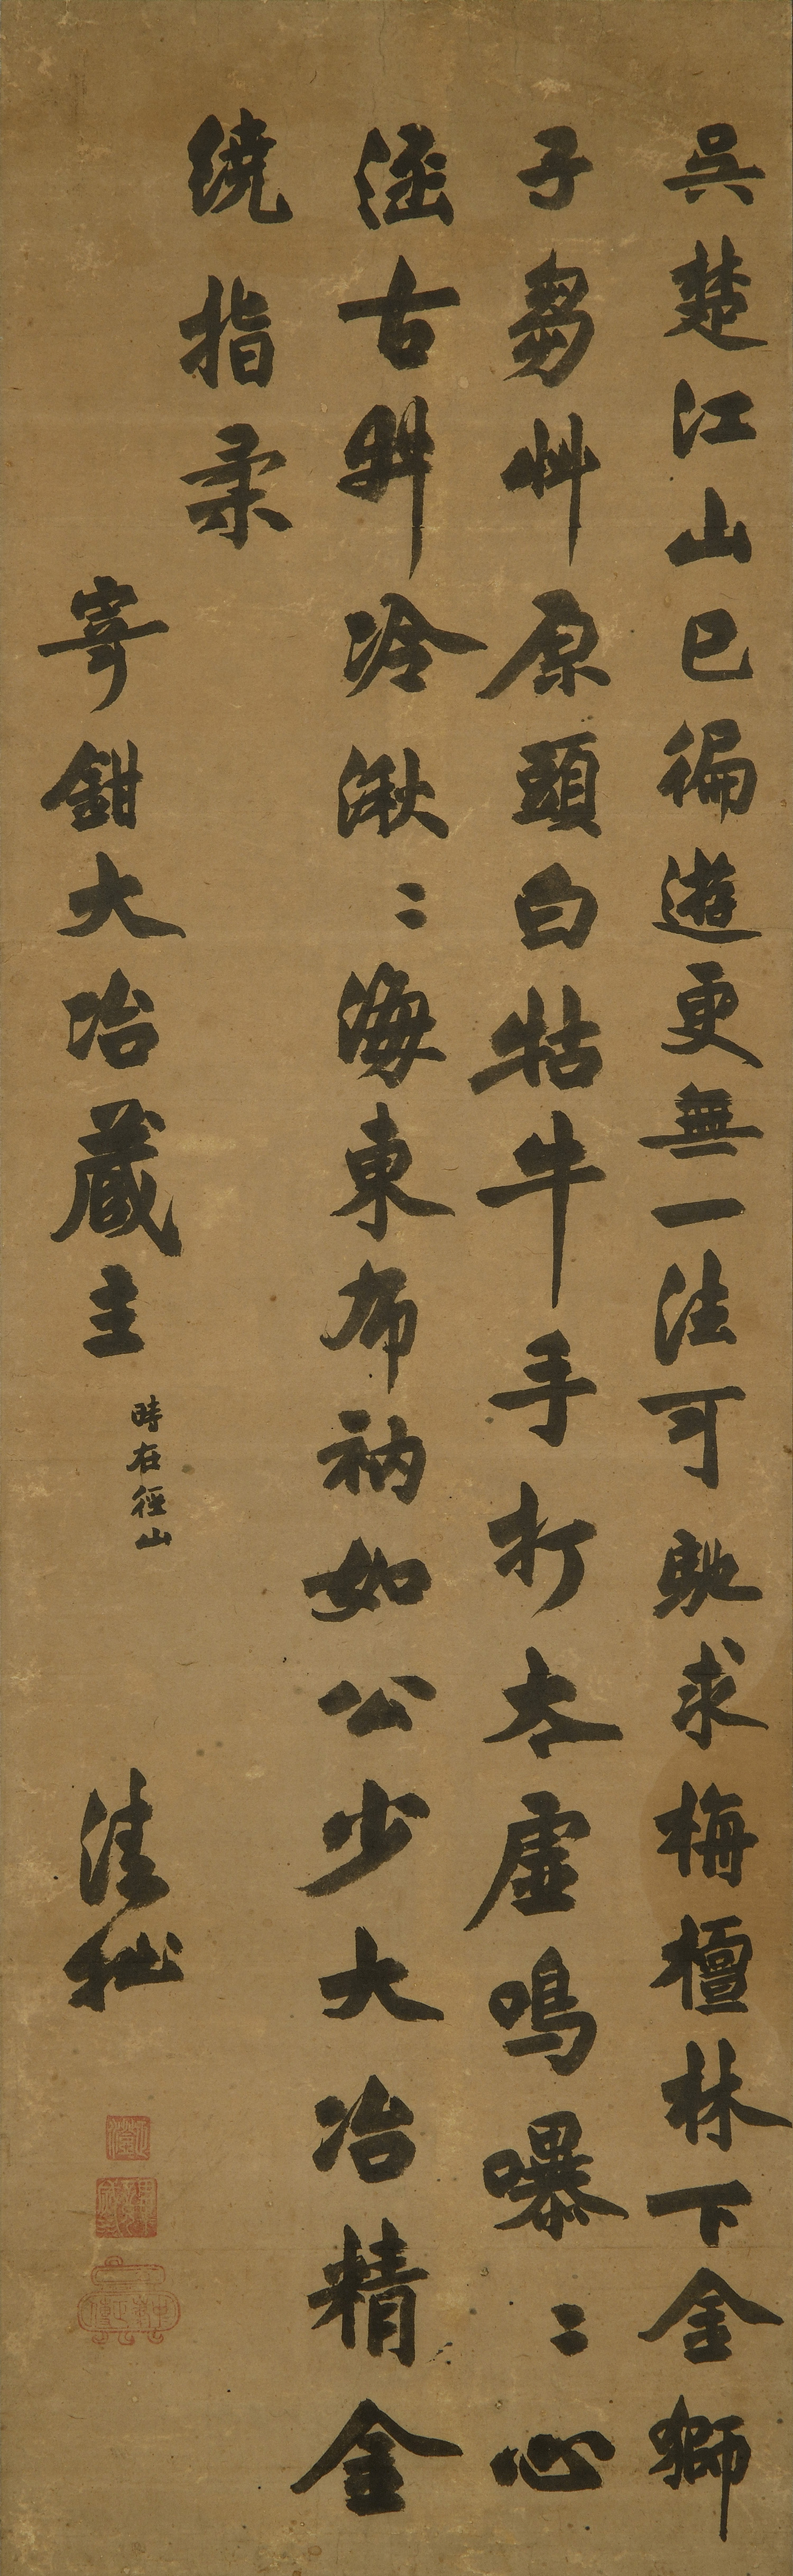 吳楚江山已徧遊更無一法可馳求栴檀林下金獅
子芻艸原頭白牯牛手打太虛鳴嚗〻心
涵古井冷湫〻海東布衲如公少大冶精金
繞指柔
寄鉗大冶蔵主
時在徑山
清拙